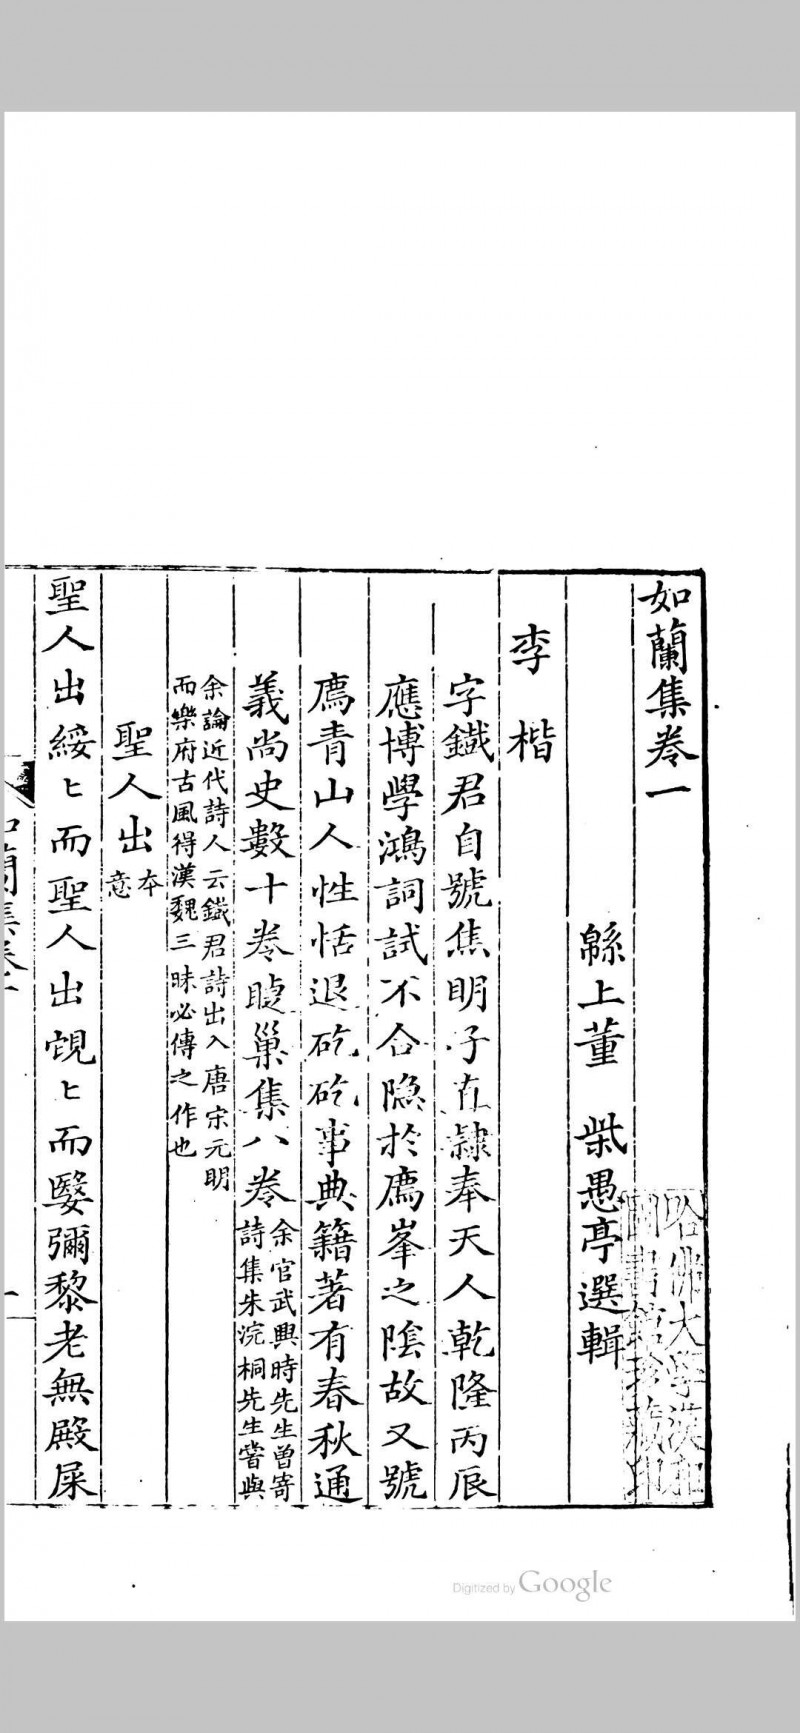 如蘭集卷一
緜上董 柴愚亭選輯
李 楷
字鐵君自號焦明子直隸奉天人乾隆丙辰
應博學鴻詞試不合隐於廌峯之陰故又號
廌青山人性恬退矻矻事典籍著有春秋通
義尚史數十卷睫巢集八卷余官武興時先生曽寄
詩集朱浣桐先生甞與
余論近代詩人云鐵君詩出入唐宋元明
而樂府古風得漢魏三昧必傳之作也
聖人出本
意
聖人出綏匕而聖人出䙾匕而嫛彌黎老無殿屎
如蘭集卷一
一
哈佛大學漢和
圖書館珍藏印
Digitized by Google